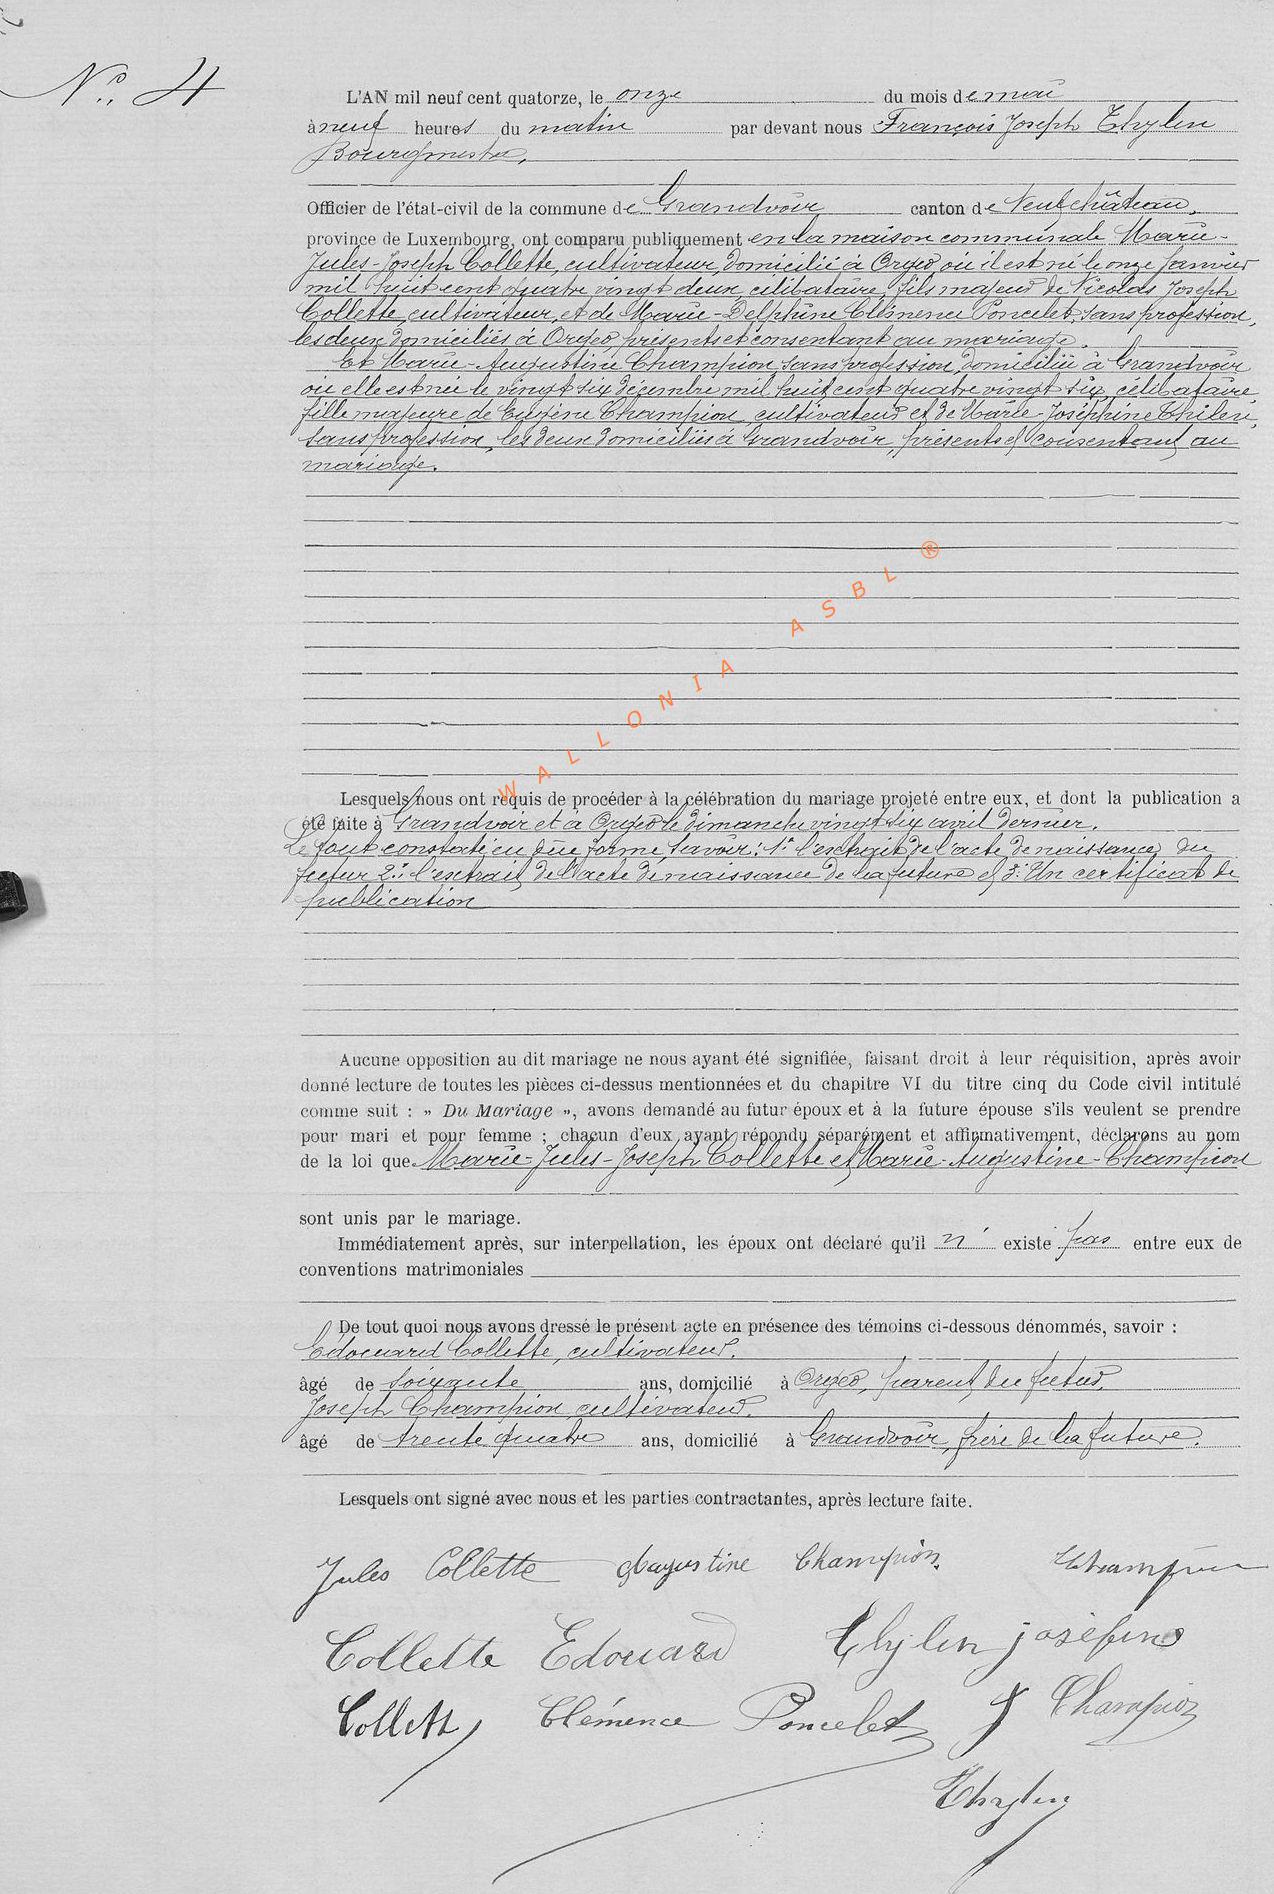 N° 4
L'AN mil neuf cent quatorze, le onze du mois de mai
à neuf heures du matin par devant nous François Joseph Thylen
Bourgmestre,
Officier de l'état-civil de la commune de Grandvoir canton de Neufchâteau,
province de Luxembourg, ont comparu publiquement en la maison communale Marie-
Jules-Joseph Collette, cultivateur, domicilié à Orgeo où il est né le onze Janvier
mil huit cent quatre vingt deux, célibataire, fils majeur de Nicolas Joseph
Collette, cultivateur, et de Marie-Delphine Clémence Poncelet, sans profession,
les deux domiciliés à Orgeo, présents et consentant au mariage.
Et Marie-Augustine Champion, sans profession, domiciliée à Grandvoir
où elle est née le vingt six décembre mil huit cent quatre vingt six, célibataire,
fille majeure de Eugène Champion, cultivateur et de Marie-Joséphine Thilen,
sans profession, les deux domiciliés à Grandvoir, présents et consentant au
mariage.
WALLONIA ASBL ®
Lesquels nous ont requis de procéder à la célébration du mariage projeté entre eux, et dont la publication a
été faite à Grandvoir et à Orgeo le dimanche vingt six avril dernier.
Le tout constaté en due forme, savoir: 1° l'extrait de l'acte de naissance du
futur 2° l'extrait de l'acte de naissance de la future et 3° Un certificat de
publication
Aucune opposition au dit mariage ne nous ayant été signifiée, faisant droit à leur réquisition, après avoir
donné lecture de toutes les pièces ci-dessus mentionnées et du chapitre VI du titre cinq du Code civil intitulé
comme suit : » Du Mariage », avons demandé au futur époux et à la future épouse s'ils veulent se prendre
pour mari et pour femme ; chacun d'eux ayant répondu séparément et affirmativement, déclarons au nom
de la loi que Marie-Jules-Joseph Collette et Marie-Augustine-Champion
sont unis par le mariage.
Immédiatement après, sur interpellation, les époux ont déclaré qu'il n' existe pas entre eux de
conventions matrimoniales
De tout quoi nous avons dressé le présent acte en présence des témoins ci-dessous dénommés, savoir :
Edouard Collette, cultivateur.
âgé de soixante ans, domicilié à Orgeo, parent du futur.
Joseph Champion, cultivateur.
âgé de trente quatre ans, domicilié à Grandvoir, frère de la future.
Lesquels ont signé avec nous et les parties contractantes, après lecture faite.
Jules Collette Augustine Champion. Champion
Collette Edouard Thylen joséfine
Collette Clémence Poncelet J Champion
Thylen